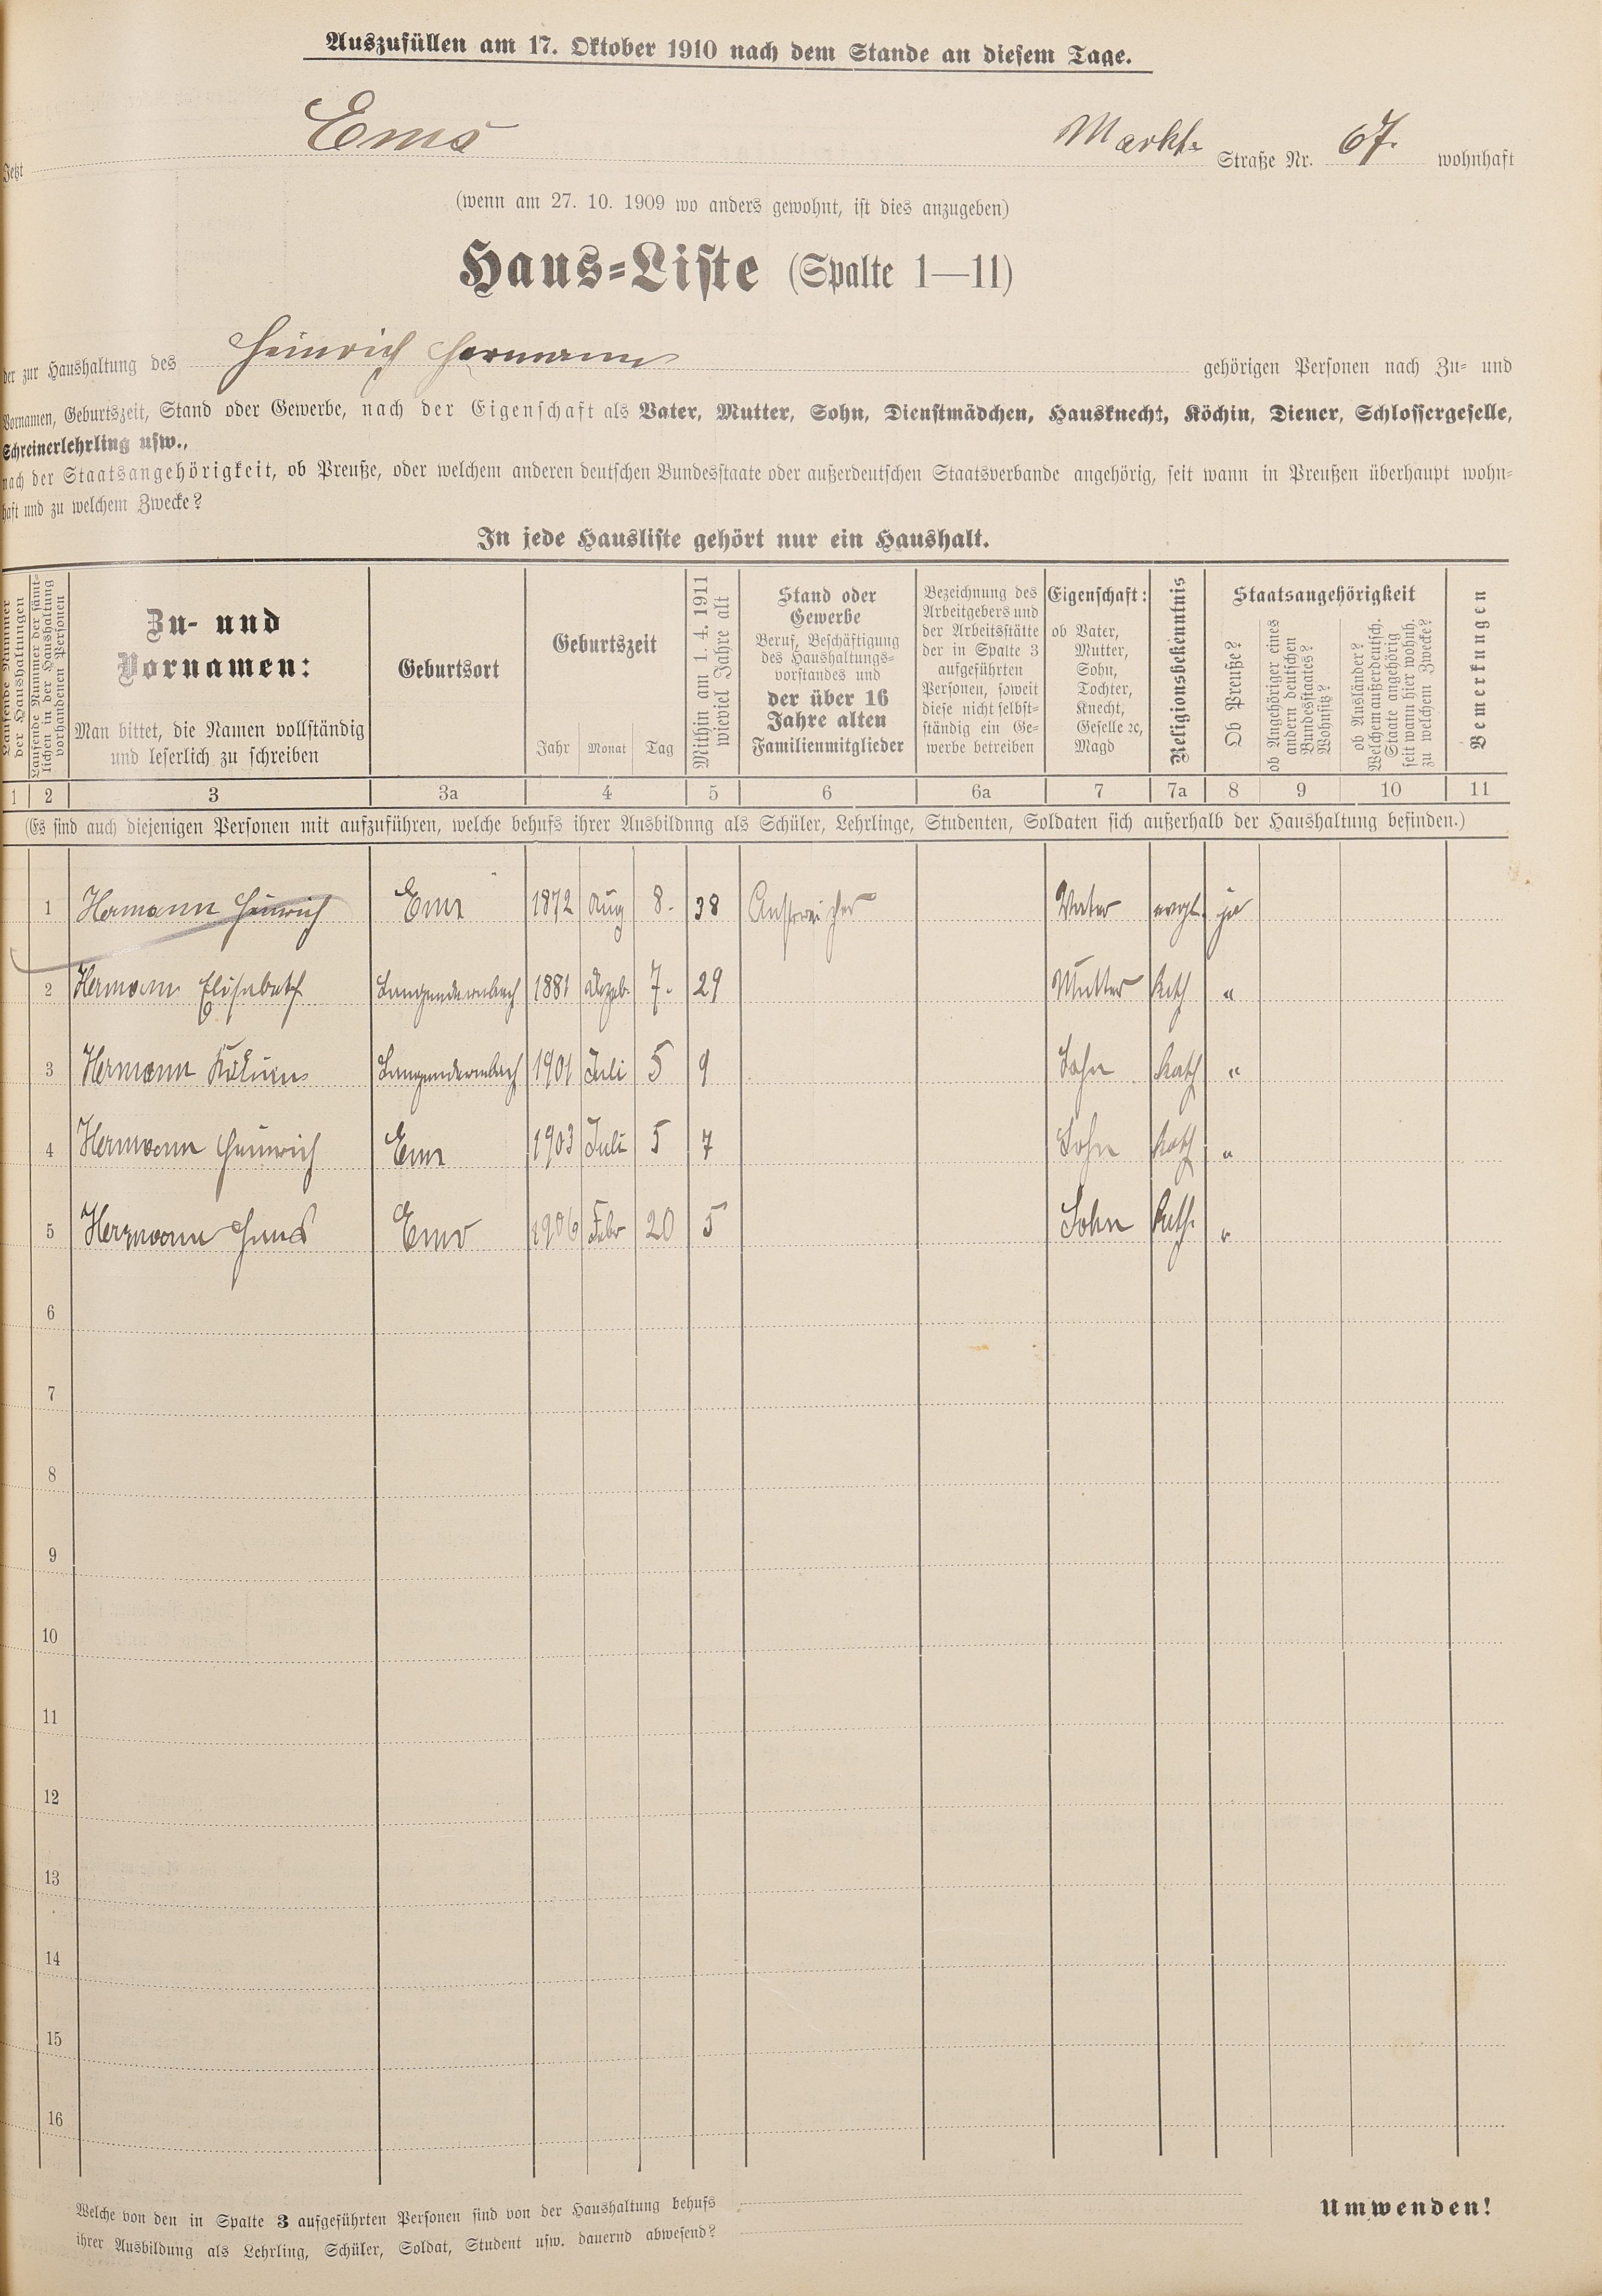 Auszufüllen am 17. Oktober 1910 nach dem Stande an diesem Tage.
Jetzt Ems Markt- Straße Nr. 67. wohnhaft
(wenn am 27. 10. 1909 wo anders gewohnt, ist dies anzugeben)
Haus-Liste (Spalte 1—11)
der zur Haushaltung des Heinrich Hermann gehörigen Personen nach Zu- und
Vornamen, Geburtszeit, Stand oder Gewerbe, nach der Eigenschaft als Vater, Mutter, Sohn, Dienstmädchen, Hausknecht, Köchin, Diener, Schlossergeselle,
Schreinerlehrling usw.,
nach der Staatsangehörigkeit, ob Preuße, oder welchem anderen deutschen Bundesstaate oder außerdeutschen Staatsverbande angehörig, seit wann in Preußen überhaupt wohn-
haft und zu welchem Zwecke?
In jede Hausliste gehört nur ein Haushalt.
Laufende Nummer
der Haushaltungen
Laufende Nummer der sämt-
lichen in der Haushaltung
vorhandenen Personen
Zu- und
Vornamen:
Man bittet, die Namen vollständig
und leserlich zu schreiben
Geburtsort
Geburtszeit
Jahr Monat Tag
Mithin am 1. 4. 1911
wieviel Jahre alt
Stand oder
Gewerbe
Beruf, Beschäftigung
des Haushaltungs-
vorstandes und
der über 16
Jahre alten
Familienmitglieder
Bezeichnung des
Arbeitgebers und
der Arbeitsstätte
der in Spalte 3
aufgeführten
Personen, soweit
diese nicht selbst-
ständig ein Ge-
werbe betreiben
Eigenschaft:
ob Vater,
Mutter,
Sohn,
Tochter,
Knecht,
Geselle ꝛc,
Magd
Religionsbekenntnis
Staatsangehörigkeit
Ob Preuße?
ob Angehöriger eines
andern deutschen
Bundesstaates?
Wohnsitz?
ob Ausländer?
Welchem außerdeutsch.
Staate angehörig
seit wann hier wohnh.
zu welchem Zwecke?
Bemerkungen
1 2 3 3a 4 5 6 6a 7 7a 8 9 10 11
(Es sind auch diejenigen Personen mit aufzuführen, welche behufs ihrer Ausbildung als Schüler, Lehrlinge, Studenten, Soldaten sich außerhalb der Haushaltung befinden.)
1 Hermann Heinrich Ems 1872 Aug 8. 38 Anstreicher Vater evgl. ja
2 Hermann Elisabeth Langendernbach 1881 Dezeb. 7. 29 Mutter Kath "
3 Hermann Langendernbach 1901 Juli 5 9 Sohn Kath "
4 Hermann Heinrich Ems 1903 Juli 5 7 Sohn Kath "
5 Hermann Hans Ems 1906 Febr 20 5 Sohn Kath. "
6
7
8
9
10
11
12
13
14
15
16
Welche von den in Spalte 3 aufgeführten Personen sind von der Haushaltung behufs
ihrer Ausbildung als Lehrling, Schüler, Soldat, Student usw. dauernd abwesend?
Umwenden!